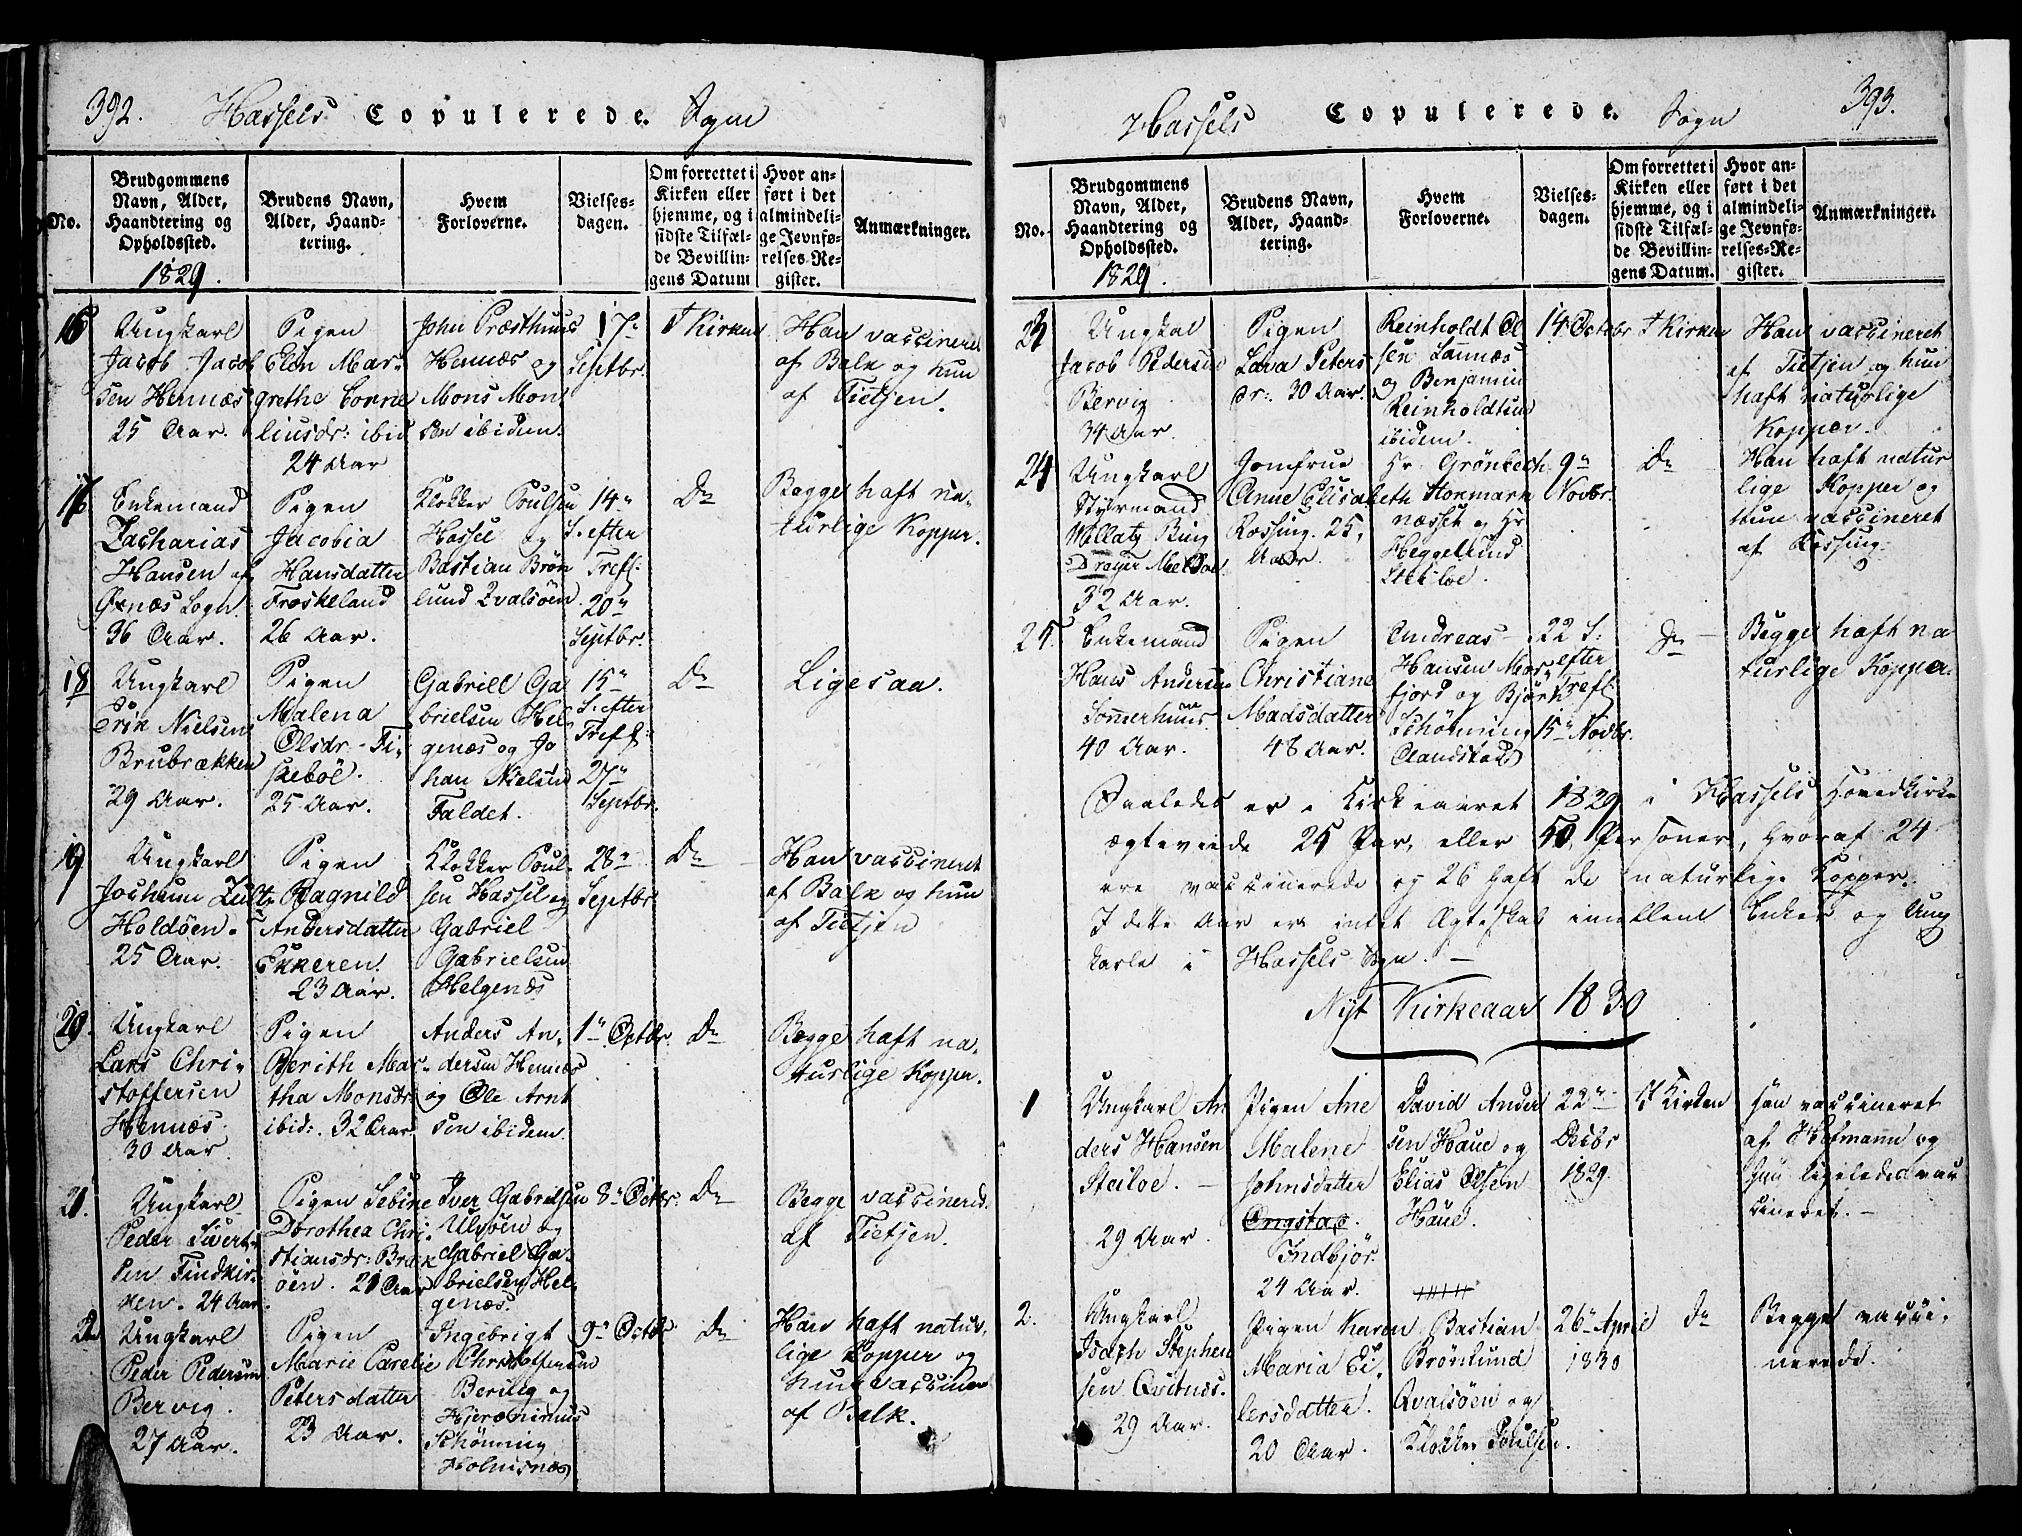 392. Hassels Copulerede. Sogn
No.
Brudgommens Navn, Alder, Haandtering og Opholdssted.
Brudens Navn, Alder, Haandtering.
Hvem Forloverne.
Vielses-dagen.
Om forrettet i Kirken eller hjemme, og i sidste Tilfælde Bevillingens Datum
Hvor anført i det almindelige Jevnførelses-Register.
Anmærkninger.
1829.
16
Ungkarl
Jacob Jacob
sen Hennæs
25 Aar.
Pigen
Elen Mar-
grethe Corne
liusdr: ibid
24 Aar
John Præsthuus
Hennæs og
Mons Mon
sen ibidem.
17
Septbr.
I Kirken
Han vaccineret
af Balk og hun
af Tietjen.
17
Enkemand
Zacharias
Hansen af
Øxnæs Sogn
36 Aar.
Pigen
Jacobia
Hansdatter
Froskeland
26 Aar.
Klokker Poulsen
Hassel og
Bastian Brøn
lund Qvalsøen
14"
S. efter
Tref:
20"
Septbr.
Do
Begge haft na-
turlige Kopper.
18
Ungkarl
Erik Nielsen
Brubrækken
29 Aar.
Pigen
Malena
Olsdr. Fi-
skebøl.
25 Aar.
Gabriell Ga
brielsen Hel
genæs og Jo
han Nielsen
Faldet.
15"
S. efter
Tref:
27"
Septbr.
Do
Ligesaa.
19
Ungkarl
Jochum
Holdøen.
25 Aar.
Pigen
Ragnild
Andersdatter
Ekkeren.
23 Aar.
Klokker Poul-
sen Hassel og
Gabriel
Gabrielsen
Helgenæs
28"
Septbr
Do
Han vaccineret
af Balk og hun
af Tietjen
20.
Ungkarl
Lars Chri-
stoffersen
Hennæs.
30 Aar.
Pigen
Berith Mar-
tha Monsdr:
ibid:. 32 Aar
Anders An-
dersen Hennæs
og Ole Arnt
sen ibidem.
1" Octbr.
Do
Begge haft na-
turlige Kopper.
21.
Ungkarl
Peder Sivert-
sen
24 Aar.
Pigen Sebine
Dorothea Chri-
stiansdr: Brak
øen. 21 Aar
Iver Gabrielsen
Ulvøen og
Gabriel Ga-
brielsen Hel-
genæs.
8" Octbr.
Do
Begge vaccinered.
af Tietjen.
22
Ungkarl
Peder Pedersen
Bervig.
27 Aar.
Pigen
Marie Carelie
Petersdatter
23 Aar.
Ingebrigt
Christoffersen
Bervig og
Hjeronimus
Schønning
Holmsnæs
9" Octbr
Do
Han haft natur-
lige Kopper og
hun vaccineret
af Balk.
Hassels Copulerede. Sogn 393.
No.
Brudgommens Navn, Alder, Haandtering og Opholdssted.
Brudens Navn, Alder, Haandtering.
Hvem Forloverne.
Vielses-dagen.
Om forrettet i Kirken eller hjemme, og i sidste Tilfælde Bevillingens Datum.
Hvor anført i det almindelige Jevnførelses-Register.
Anmærkninger.
1829.
23
Ungkal
Jacob Pedersen
Bervig
34 Aar.
Pigen
Lava Peters
Dr:. 30 Aar.
Reinholdt Ol
sen
og Benjamin
Reinholdtsen
ibidem.
14 Octobr
I Kirken
Han vaccineret
af Tietjen og hun
haft naturlige
Kopper.
24
Ungkarl
Styrmand
32 Aar.
Jomfrue
Anne Elisabeth
Rossing. 25,
Aar.
Hr Grønbech
næsset og Hr
Heggelund
Steiloe.
9"
Novbr.
Do
Han haft natur
lige Kopper og
Hun vaccineret
af Rossing.
25.
Enkemand
Hans Andersen
40 Aar.
Pigen
Christiane
Madsdatter
48 Aar.
Andreas
Hansen Mør-
fjord og Bjørn
Schønning
Sandstad
22 S:
efter
Tref:
15" Novbr.
Do
Begge haft na
turlige Kopper.
Saaledes er i Kirkeaaret 1829 i Hassels Hovedkirke
ægteviede 25 Par, eller 50, Personer, hvoraf 24
ere vaccinerede og 26 haft de naturlige Kopper.
I dette Aar er intet Ægteskab imellem Enker og Ung
karle i Hassels Sogn. —
Nyt Kirkeaar 1830
1
Ungkarl An
ders Hansen
Steiloe. —
29 Aar.
Pigen Ane
Malene
Johnsdatter
Ongstad.
Indbjør.
24 Aar.
David Ander
sen Haue og
Elias Olsen
Haue.
22"
Decbr
1829.
I Kirken
Han vaccineret
af Hofmann og
hun ligeledes vac
cineret. —
2.
Ungkarl
Joseph Stephen
sen Qvitnæs.
29 Aar.
Pigen Karen
Maria Ei-
lersdatter.
20 Aar.
Bastian
Brønlund
Qvalsøen og
Klokker Poulsen.
26" April
1830
Do
Begge vacci-
nerede.